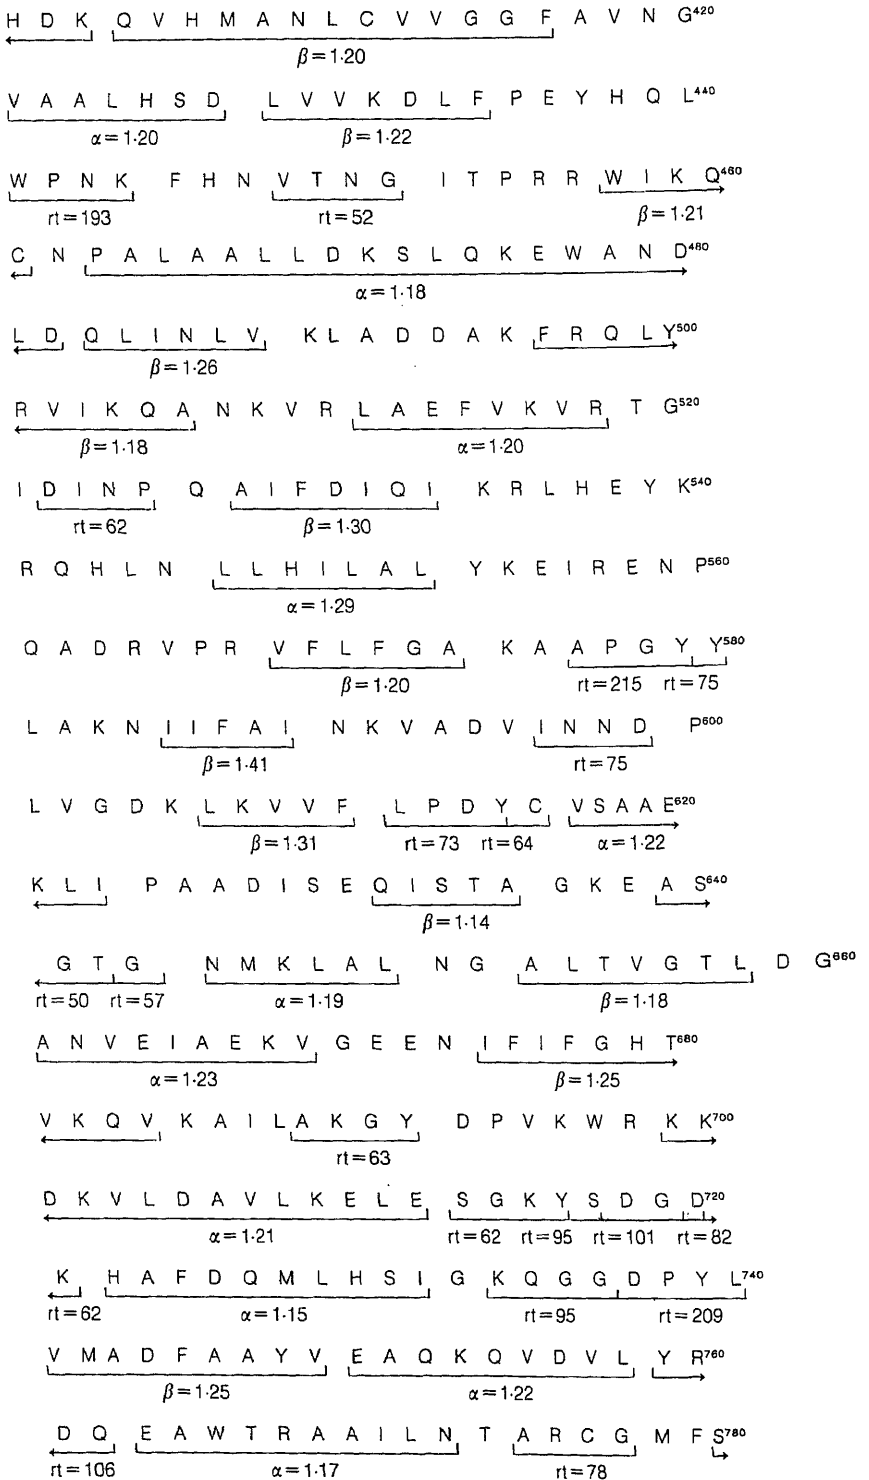 H D K Q V H M A N L C V V G G F A V N G420
β = 1·20
V A A L H S D L V V K D L F P E Y H Q L440
α = 1·20 β = 1·22
W P N K F H N V T N G I T P R R W I K Q460
rt = 193 rt = 52 β = 1·21
C N P A L A A L L D K S L Q K E W A N D480
α = 1·18
L D Q L I N L V K L A D D A K F R Q L Y500
β = 1·26
R V I K Q A N K V R L A E F V K V R T G520
β = 1·18 α = 1·20
I D I N P Q A I F D I Q I K R L H E Y K540
rt = 62 β = 1·30
R Q H L N L L H I L A L Y K E I R E N P560
α = 1·29
Q A D R V P R V F L F G A K A A P G Y Y580
β = 1·20 rt = 215 rt = 75
L A K N I I F A I N K V A D V I N N D P600
β = 1·41 rt = 75
L V G D K L K V V F L P D Y C V S A A E620
β = 1·31 rt = 73 rt = 64 α = 1·22
K L I P A A D I S E Q I S T A G K E A S640
β = 1·14
G T G N M K L A L N G A L T V G T L D G660
rt = 50 rt = 57 α = 1·19 β = 1·18
A N V E I A E K V G E E N I F I F G H T680
α = 1·23 β = 1·25
V K Q V K A I L A K G Y D P V K W R K K700
rt = 63
D K V L D A V L K E L E S G K Y S D G D720
α = 1·21 rt = 62 rt = 95 rt = 101 rt = 82
K H A F D Q M L H S I G K Q G G D P Y L740
rt = 62 α = 1·15 rt = 95 rt = 209
V M A D F A A Y V E A Q K Q V D V L Y R760
β = 1·25 α = 1·22
D Q E A W T R A A I L N T A R C G M F S780
rt = 106 α = 1·17 rt = 78